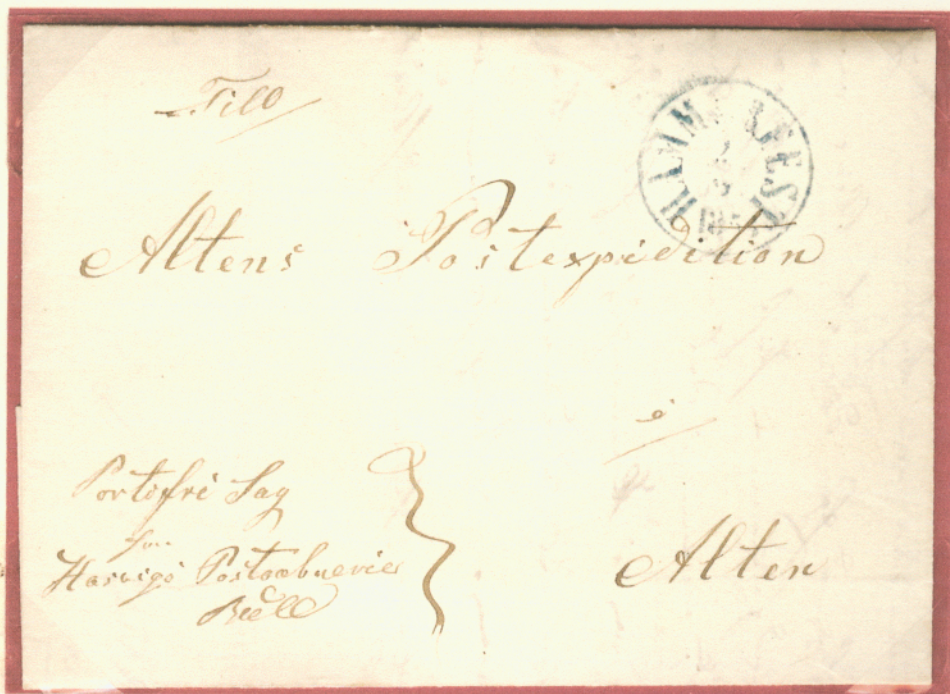 Till
HAMMERFEST
Altens Postexpedition
i
Alten
Portofri Sag
fra
Hasvigs Postaabnerie